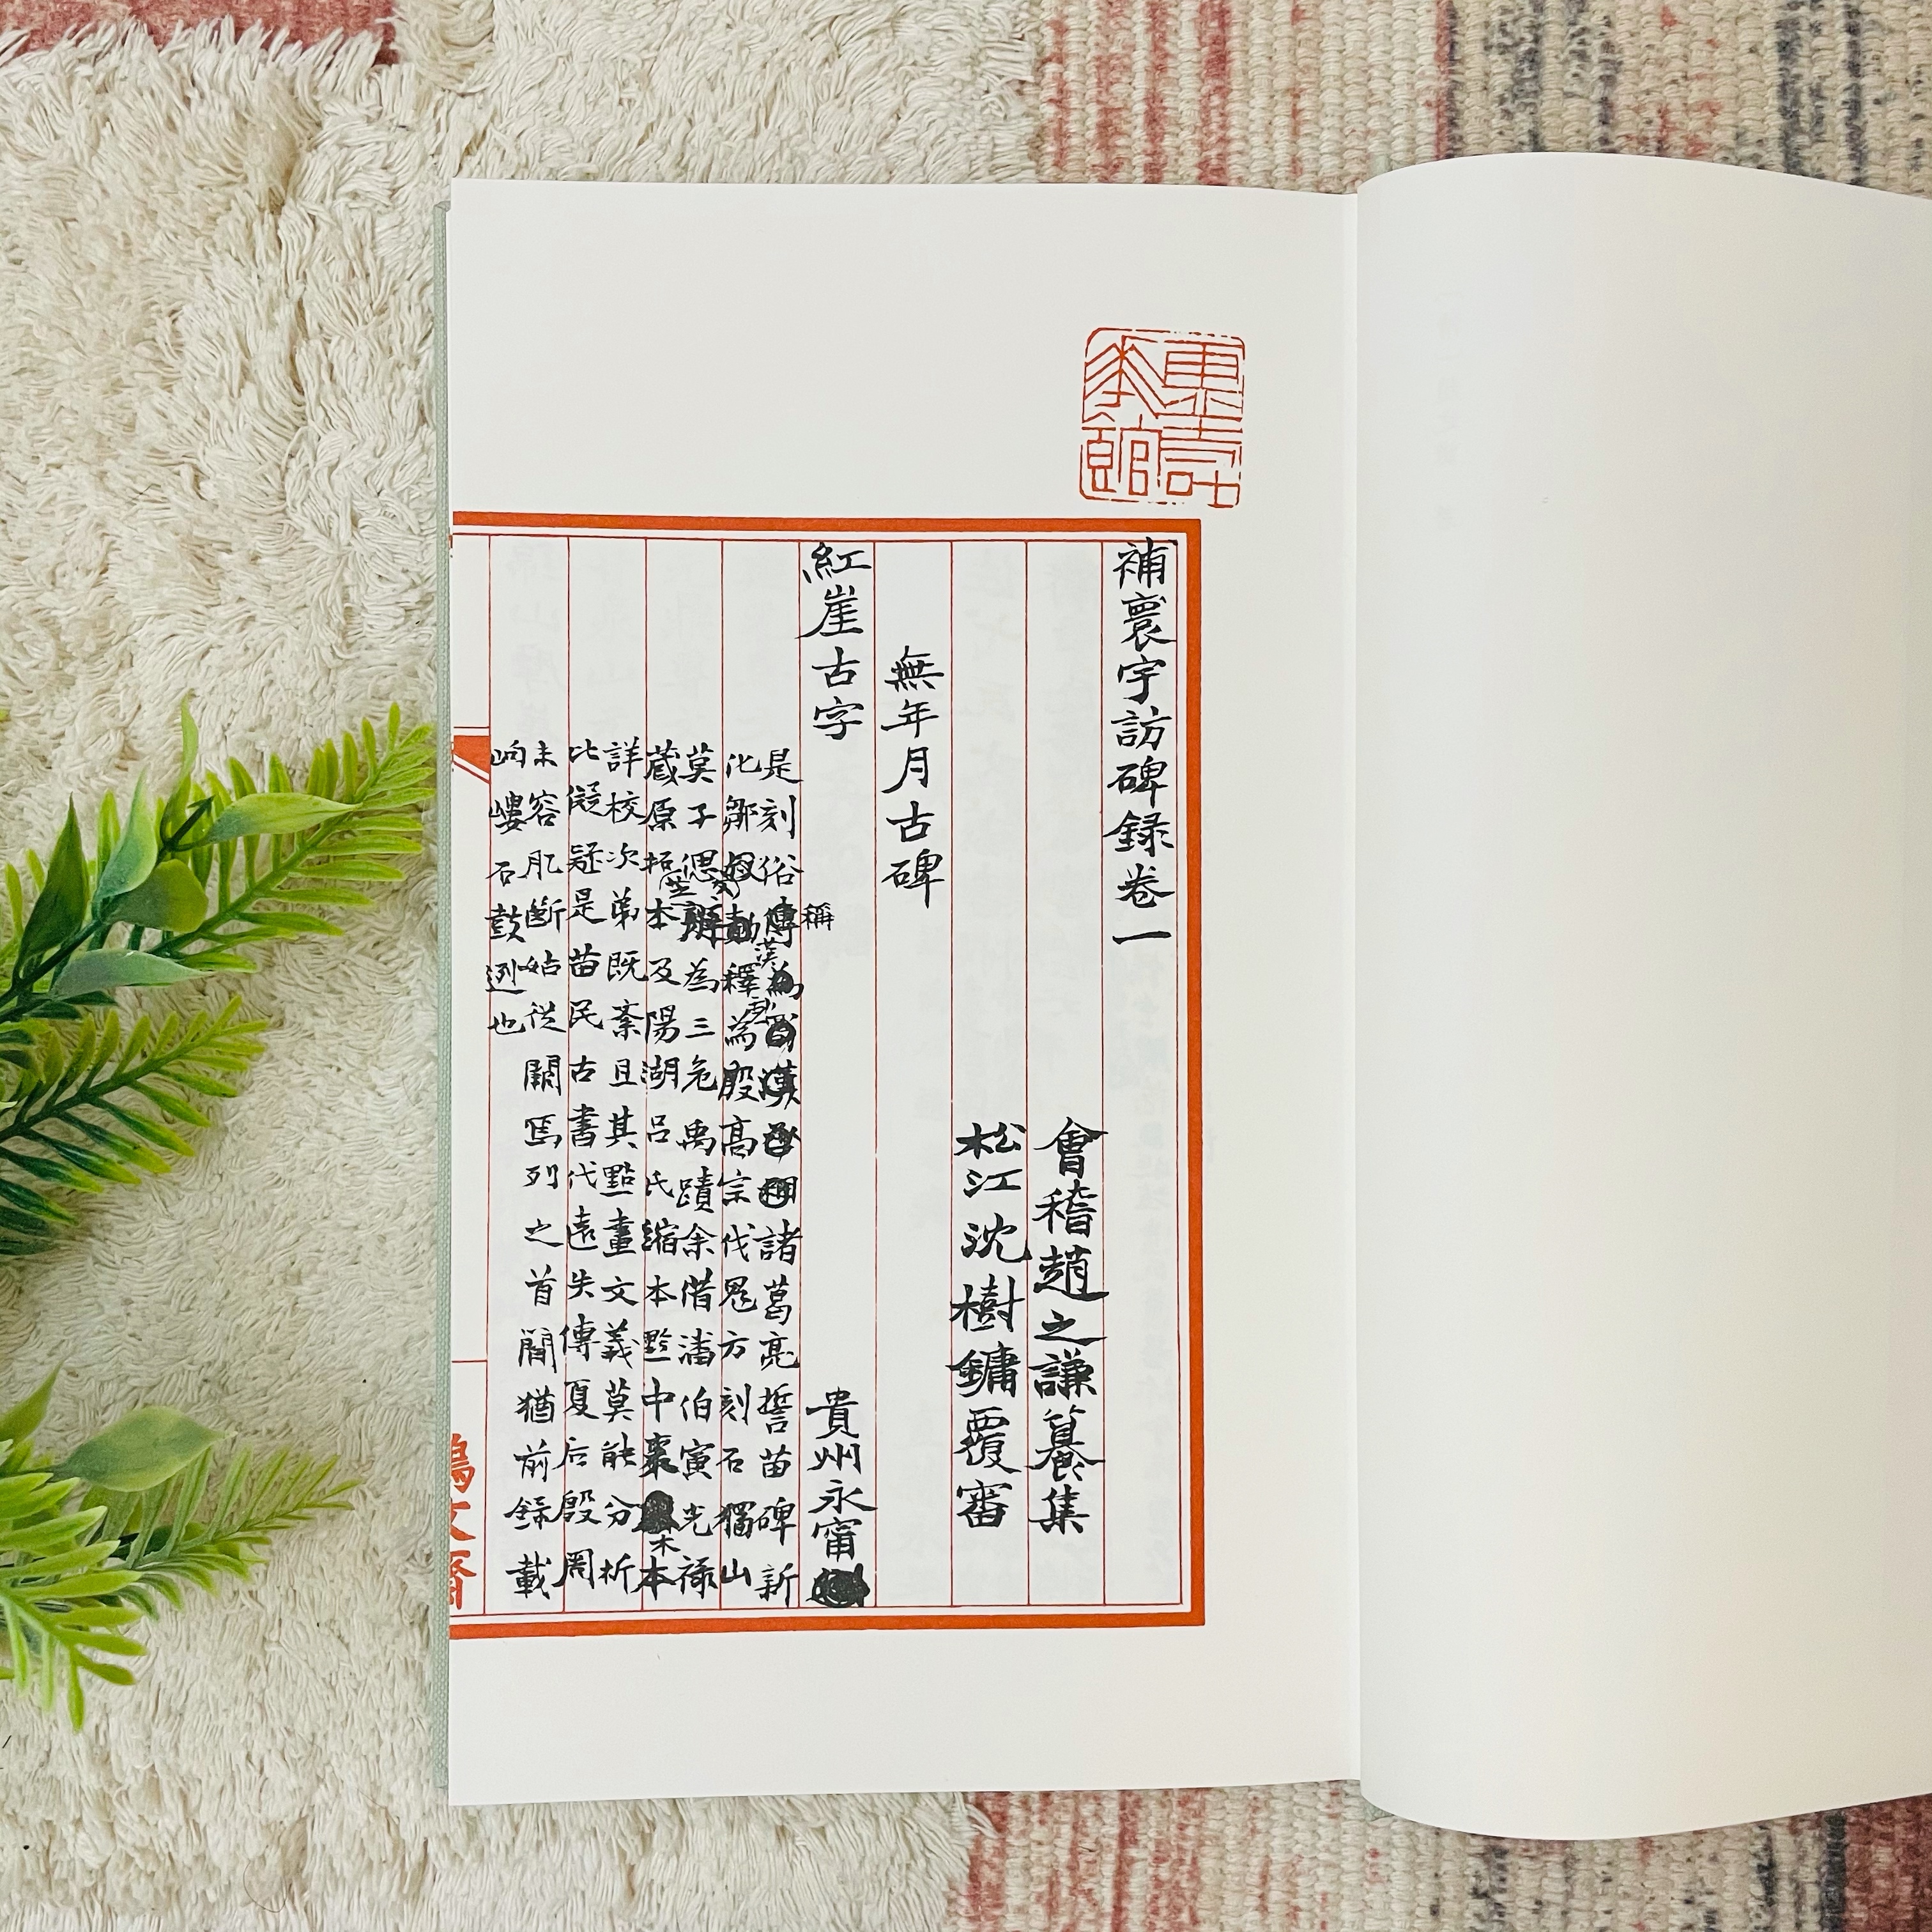 補寰宇訪碑錄卷一
會稽趙之謙纂集
松江沈樹鏞覆審
無年月古碑
紅崖古字
貴州永甯
稱
是刻俗傳為漢諸葛亮誓苗碑新
化鄒釋為殷高宗伐鬼方刻石獨山
莫子偲為三危禹蹟余借潘伯寅光祿
藏原拓本及陽湖呂氏縮本黔中棗木本
詳校次弟既紊且其點畫文義莫能分析
比儗疑是苗民古書代遠失傳夏后殷周
未容肊斷姑從闕焉列之首簡猶前錄載
岣嶁石鼓迾也
東
館
文齋